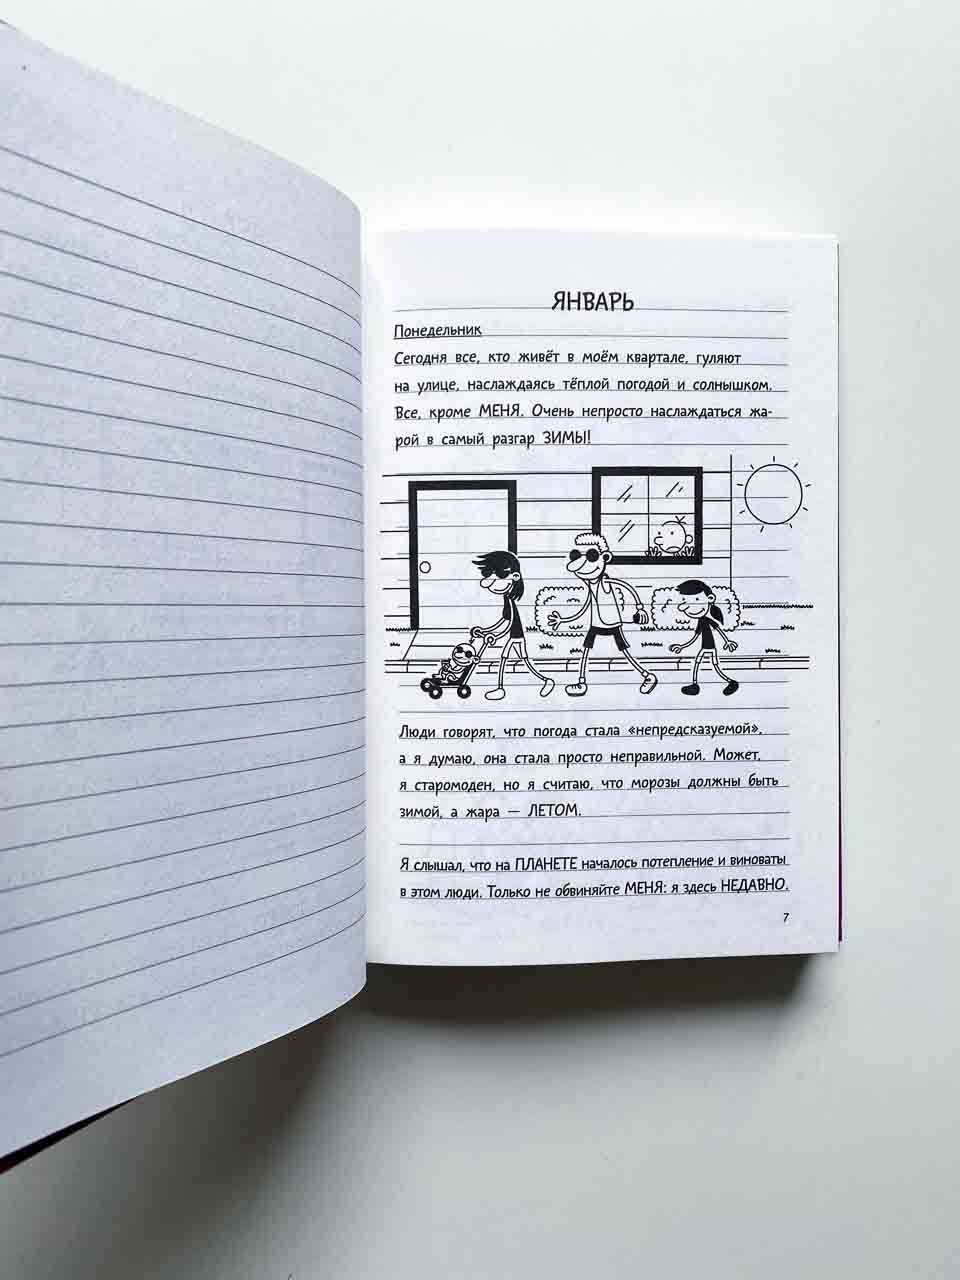 ЯНВАРЬ
Понедельник
Сегодня все, кто живёт в моём квартале, гуляют
на улице, наслаждаясь тёплой погодой и солнышком.
Все, кроме МЕНЯ. Очень непросто наслаждаться жа-
рой в самый разгар ЗИМЫ!
Люди говорят, что погода стала «непредсказуемой»,
а я думаю, она стала просто неправильной. Может,
я старомоден, но я считаю, что морозы должны быть
зимой, а жара — ЛЕТОМ.
Я слышал, что на ПЛАНЕТЕ началось потепление и виноваты
в этом люди. Только не обвиняйте МЕНЯ: я здесь НЕДАВНО.
7